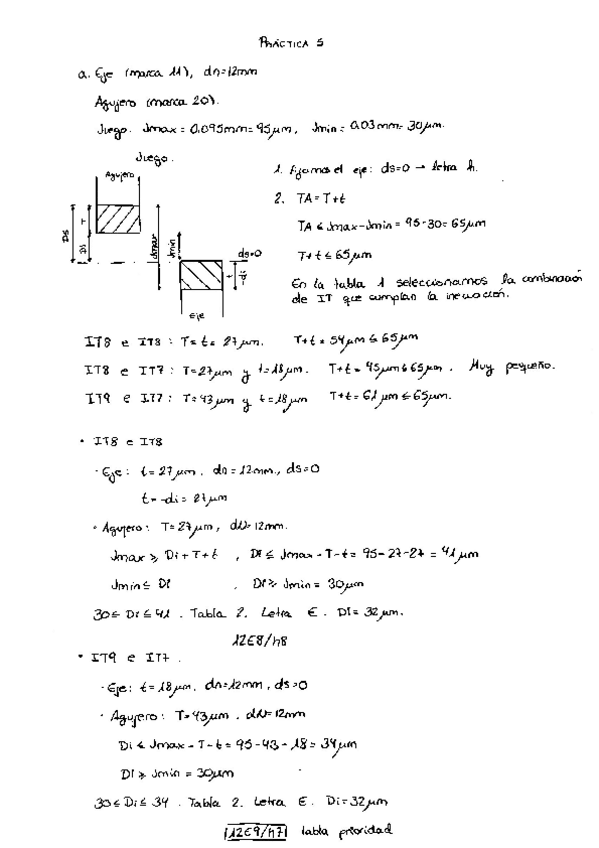 PRÁCTICA 5
a. Eje (marca 11), dn=12mm
Agujero (marca 20).
Juego. Jmax = 0.095mm = 95μm, Jmin = 0.03mm = 30μm.
Juego.
Agujero
T
Ds
Di
Jmax
Jmin
ds=0
t
di
Eje
1. Fijamos el eje: ds=0 → letra h.
2. TA = T+t
TA ≤ Jmax-Jmin = 95-30 = 65μm
T+t ≤ 65μm
En la tabla 1 seleccionamos la combinación
de IT que cumplan la inecuación.
IT8 e IT8 : T = t = 27μm. T+t = 54μm ≤ 65μm
IT8 e IT7 : T=27μm y t=18μm. T+t = 45μm ≤ 65μm. Muy pequeño.
IT9 e IT7 : T=43μm y t=18μm T+t = 61μm ≤ 65μm.
• IT8 e IT8
· Eje: t=27μm. dn=12mm., ds=0
t=-di = 27μm
• Agujero: T=27μm, dN=12mm.
Jmax ≥ Di+T+t , Di ≤ Jmax-T-t = 95-27-27 = 41μm
Jmin ≤ Di , Di ≥ Jmin = 30μm
30 ≤ Di ≤ 41 . Tabla 2. Letra E. Di = 32μm.
12E8/h8
• IT9 e IT7.
· Eje: t=18μm. dn=12mm, ds=0
· Agujero: T=43μm. dN=12mm
Di ≤ Jmax-T-t = 95-43-18 = 34μm
Di ≥ Jmin = 30μm
30 ≤ Di ≤ 34 . Tabla 2. Letra E. Di=32μm
12E9/h7 tabla prioridad